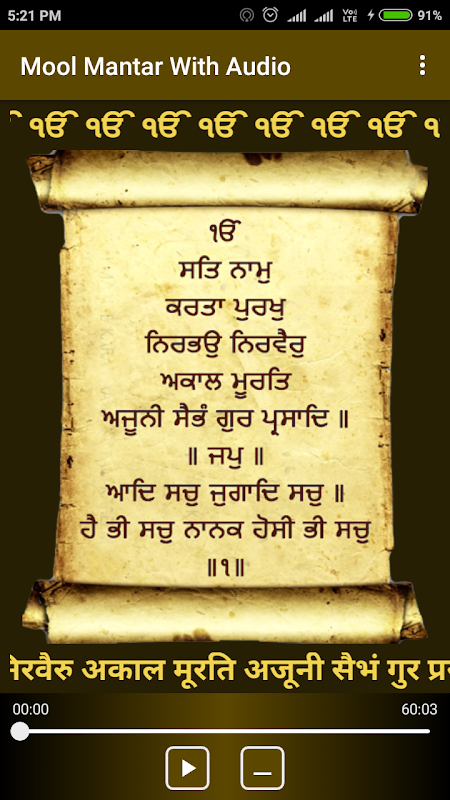 5:21 PM
Vo) LTE
91%
Mool Mantar With Audio
ੴ ੴ ੴ ੴ ੴ ੴ ੴ
ੴ
ਸਤਿ ਨਾਮੁ
ਕਰਤਾ ਪੁਰਖੁ
ਨਿਰਭਉ ਨਿਰਵੈਰੁ
ਅਕਾਲ ਮੂਰਤਿ
ਅਜੂਨੀ ਸੈਭੰ ਗੁਰ ਪ੍ਰਸਾਦਿ ॥
॥ ਜਪੁ ॥
ਆਦਿ ਸਚੁ ਜੁਗਾਦਿ ਸਚੁ ॥
ਹੈ ਭੀ ਸਚੁ ਨਾਨਕ ਹੋਸੀ ਭੀ ਸਚੁ
॥੧॥
अकाल मूरति अजूनी सैभं गुर
00:00
60:03